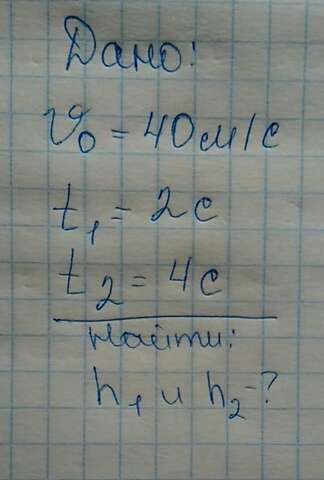 Дано:
V₀ = 40 м/с
t₁ = 2 с
t₂ = 4 с
Найти:
h₁ и h₂ - ?